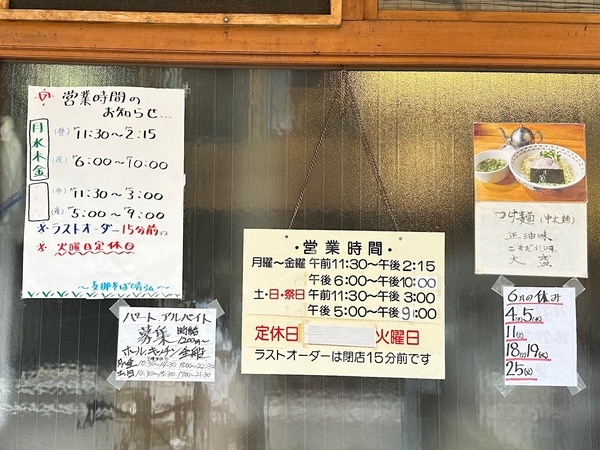 営業時間の
お知らせ...
月水木金
(昼) 11:30〜2:15
(夜) 6:00〜10:00
(昼) 11:30〜3:00
(夜) 5:00〜9:00
※ラストオーダー15分前
※火曜日定休日
〜支那そば晴弘〜
パート アルバイト
募集 時給
1200円〜
ホール、キッチン
月〜金
土日
・営業時間・
月曜〜金曜 午前11:30〜午後2:15
午後6:00〜午後10:00
土・日・祭日 午前11:30〜午後3:00
午後5:00〜午後9:00
定休日 火曜日
ラストオーダーは閉店15分前です
つけ麺(中太麺)
正油味
ごまだれ味
大盛
6月の休み
4(火)5(水)
11(火)
18(火)19(水)
25(火)